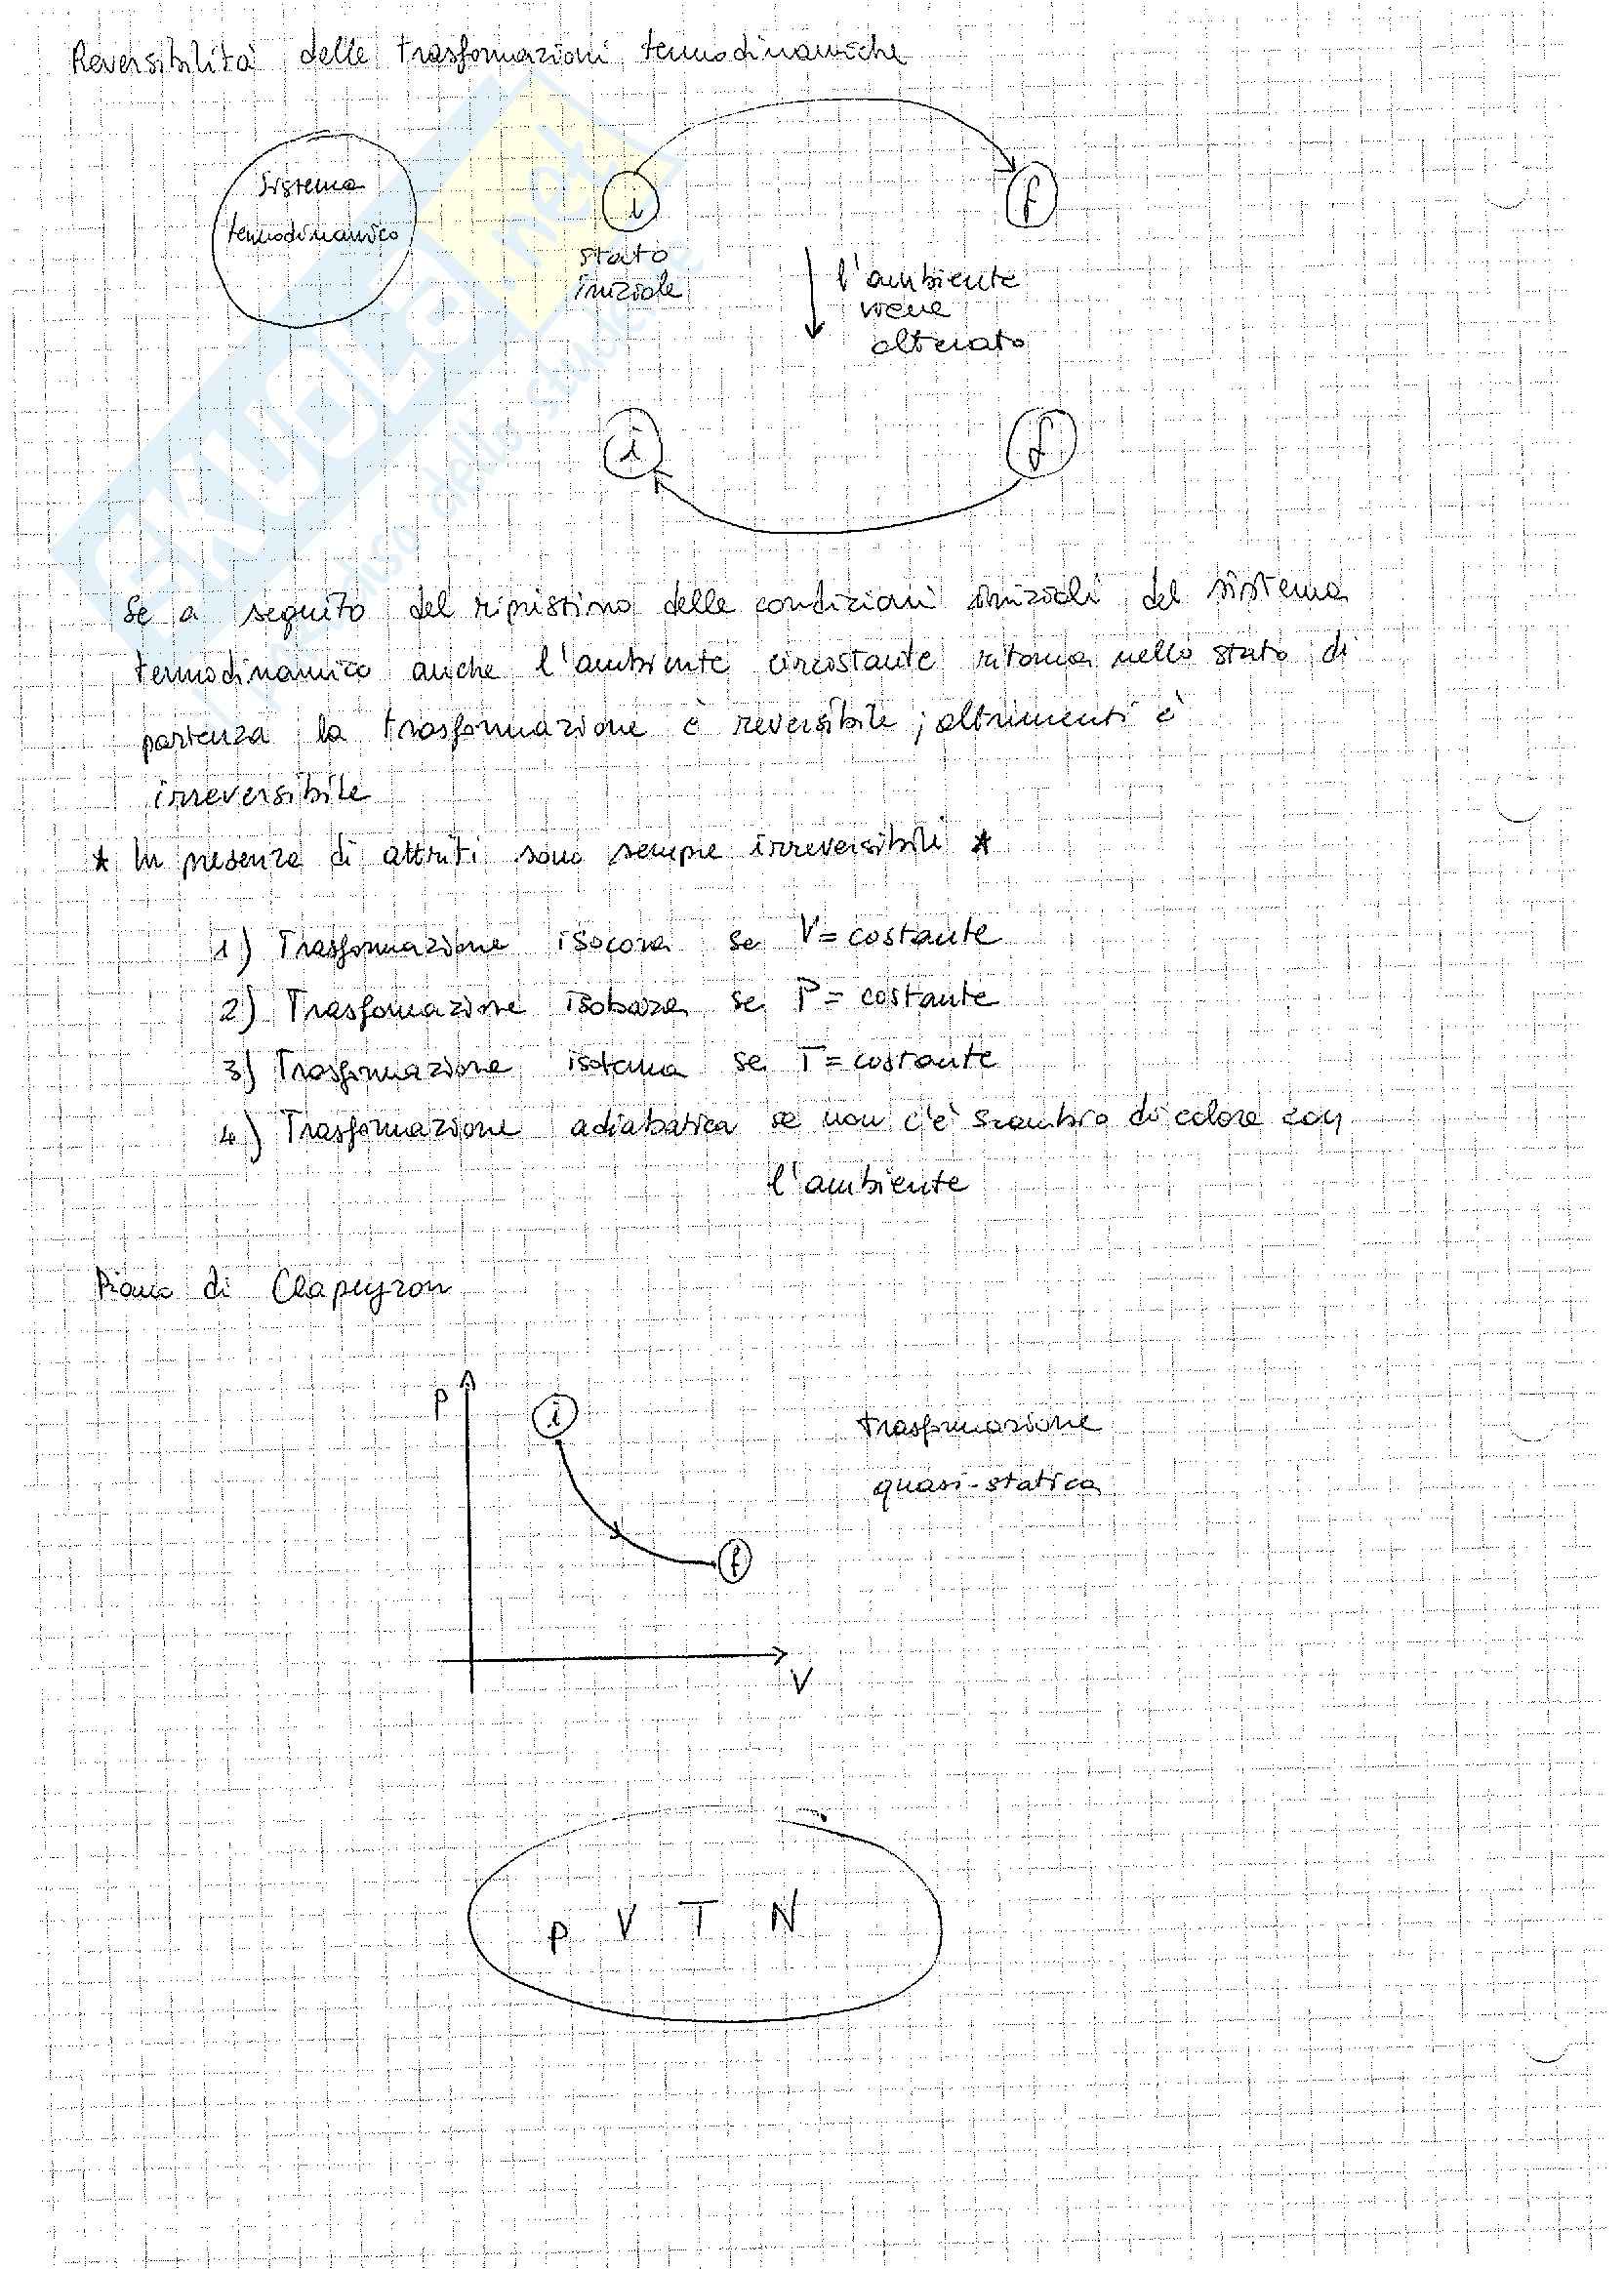 Reversibilità delle trasformazioni termodinamiche
sistema
termodinamico
i
f
stato
iniziale
l'ambiente
viene
alterato
i
f
Se a seguito del ripristino delle condizioni iniziali del sistema
termodinamico anche l'ambiente circostante ritorna nello stato di
partenza la trasformazione è reversibile; altrimenti è
irreversibile
* In presenza di attriti sono sempre irreversibili *
1) Trasformazione isocora se V= costante
2) Trasformazione isobara se P= costante
3) Trasformazione isoterma se T= costante
4) Trasformazione adiabatica se non c'è scambio di calore con
l'ambiente
Piano di Clapeyron
P
i
trasformazione
quasi-statica
f
V
P V T N